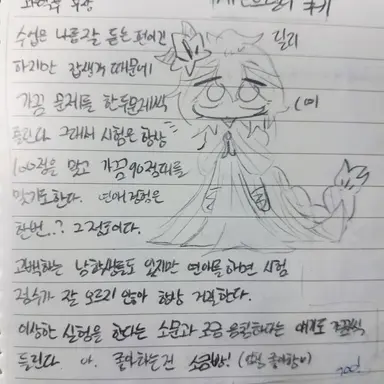 과학부 부장
수업은 나름 잘 듣는 편이긴
하지만 잡생각 때문에
가끔 문제를 한두문제씩
틀린다. 그래서 시험은 항상
100점을 맞고 가끔 90점대를
맞기도한다. 연애 경험은
한번..? 그정도이다.
고백하는 남학생들도 있지만 연애를 하면 시험
점수가 잘 오르지 않아 항상 거절한다.
이상한 실험을 한다는 소문과 조금 음침하다는 얘기도 가끔씩
들린다. 아. 좋아하는건 소금빵!
릴리